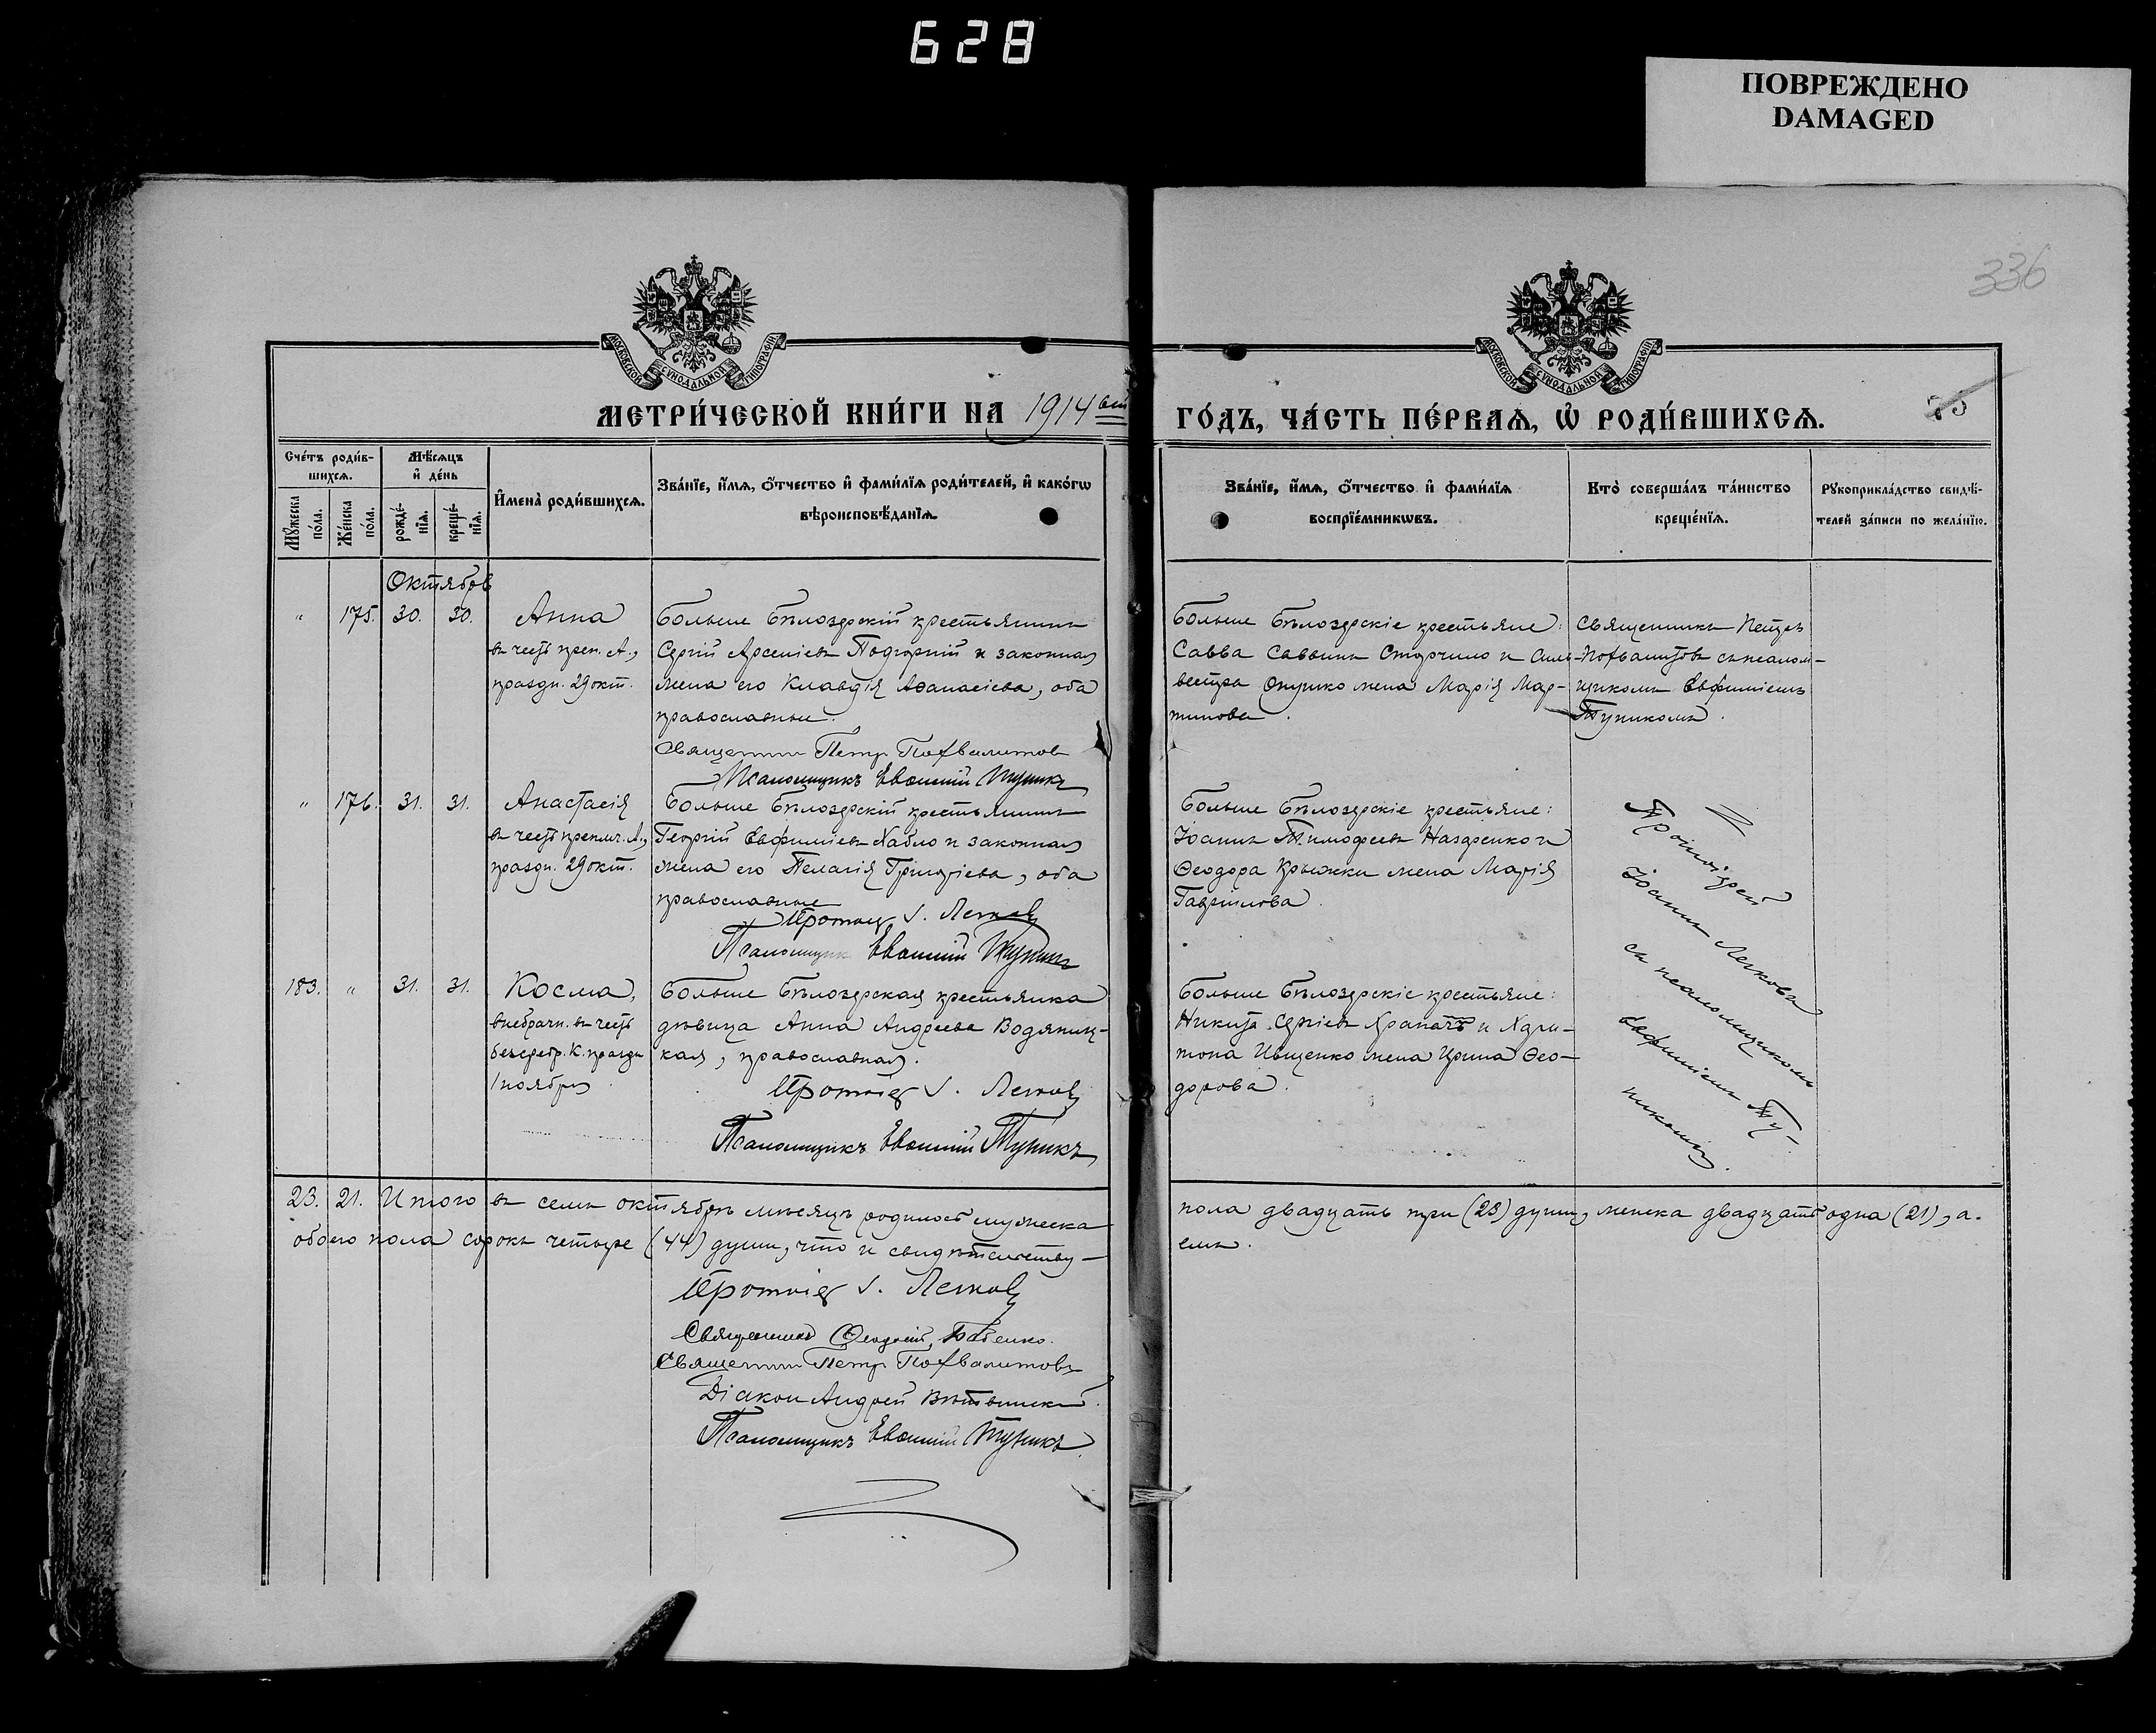 628
ПОВРЕЖДЕНО
DAMAGED
336
МОСКОВСКОЙ СѴНОДАЛЬНОЙ ТИПОГРАФІИ
МОСКОВСКОЙ СѴНОДАЛЬНОЙ ТИПОГРАФІИ
МЕТРИ́ЧЕСКОЙ КНИ́ГИ НА 1914
ГО́ДЪ, ЧА́СТЬ ПЕ́РВАѦ, Ѡ҆ РОДИ́ВШИХСѦ.
Сче́тъ роди́в-
шихсѧ.
Мꙋ́жеска по́ла.
Же́нска по́ла.
Мѣ́сѧцъ
и҆ де́нь
рожде́-
нїѧ.
креще́-
нїѧ.
И҆мена̀ роди́вшихсѧ.
Зва́нїе, и҆́мѧ, ѻ҆́тчество и҆ фами́лїѧ роди́телей, и҆ како́гѡ
вѣроисповѣ́данїѧ.
Зва́нїе, и҆́мѧ, ѻ҆́тчество и҆ фами́лїѧ
воспрїе́мникѡвъ.
Кто̀ соверша́лъ та́инство
креще́нїѧ.
Рꙋкоприкла́дство свидѣ́-
телей за́писи по жела́нїю.
Октябрь
" 175. 30. 30. Анна
въ честь преп. А.,
праздн. 29 окт.
Больше Бѣлозерскій крестьянинъ
Сергій Арсеніевъ Подгорній и законная
жена его Клавдія Аѳанасіева, оба
православные.
Священник Петр Похвалитов
Псаломщикъ Евѳимій Тупикъ
Больше Бѣлозерскіе крестьяне:
Савва Саввинъ Сторчило и Силь-
вестра Онушко жена Марія Мар-
тинова.
Священникъ Петръ
Похвалитовъ съ псалом-
щикомъ Евфиміемъ
Тупикомъ.
" 176. 31. 31. Анастасія
въ честь препмч. А.,
праздн. 29 окт.
Больше Бѣлозерскій крестьянинъ
Георгій Евфиміевъ Хабло и законная
жена его Пелагія Григоріева, оба
православные
Протоіер. І. Легков
Псаломщик Евѳимій Тупикъ
Больше Бѣлозерскіе крестьяне:
Іоаннъ Тимофеевъ Назаренко и
Ѳеодора Крыжки жена Марія
Гавриилова.
Протоіерей
Іоаннъ Легковъ
съ псаломщикомъ
Евфиміемъ Ту-
пикомъ.
183. " 31. 31. Косма,
внебрачн. въ честь
безсребр. К. праздн.
1 ноября.
Больше Бѣлозерская крестьянка
дѣвица Анна Андреева Водяниц-
кая, православная.
Протоіер. І. Легков
Псаломщикъ Евѳимій Тупикъ
Больше Бѣлозерскіе крестьяне:
Никита Сергіевъ Храпачъ и Хари-
тона Ищенко жена Ирина Ѳео-
дорова.
23. 21. Итого въ семъ октябрѣ мѣсяцѣ родилось мужеска
пола двадцать три (23) души, женска двадцать одна (21), а
обоего пола сорокъ четыре (44) души, что и свидѣтельству-
емъ.
Протоіер. І. Легков
Священникъ Ѳеодосій Бабенко.
Священник Петр Похвалитовъ
Діакон Андрей
Псаломщикъ Евѳимій Тупикъ